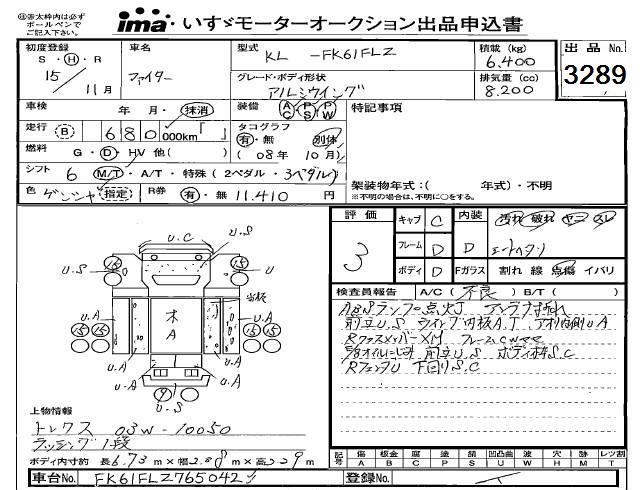 ㊟赤太枠内は必ず
ボールペンで
ご記入下さい。
ima いすゞモーターオークション出品申込書
初度登録 車名 型式 KL -FK61FLZ 積載 (kg) 6.400 出品 No.
S・H・R 15/11月 ファイター グレード・ボディ形状 アルミウイング 排気量 (cc) 8.200 3289
車検 年 月・抹消 装備 AC PS PW 特記事項
走行 B 680,000km「 」 タコグラフ 有・無 別体
燃料 G・D・HV 他( ) (08年 10月)
シフト 6 M/T・A/T・特殊 (2ペダル・3ペダル)
色 ゲンシャ 指定 R券 有・無 11.410 円
架装物年式:( 年式)・不明
※不明の場合は、不明に○をする。
評価 3 キャブ C 内装 汚れ 破れ ヤニ スレ
フレーム D D
ボディ D Fガラス 割れ 線 点傷 イバリ
検査員報告 A/C(不良)B/T( )
ABSランプ点灯
前立U.S ウイング内板A.T アオリ内側U.A
RクロスメンバーXM フレームC
前立U.S S.C
RフェンダU 下回りS.C
U.C
U.S
15 15
U.S
U.A
15 15
木
A
U.A
15 15
U.A
U.A
9
U.S
上物情報
トレクス 03W-10050
ラッシング1段
ボディ内寸約 長6.73m×幅2.38m×高2.29m
記号 傷A 板金B 腐C 塗P 錆S 凹凸曲U 波W 穴H 跡M レツ割T
車台No. FK61FLZ765042 登録No.